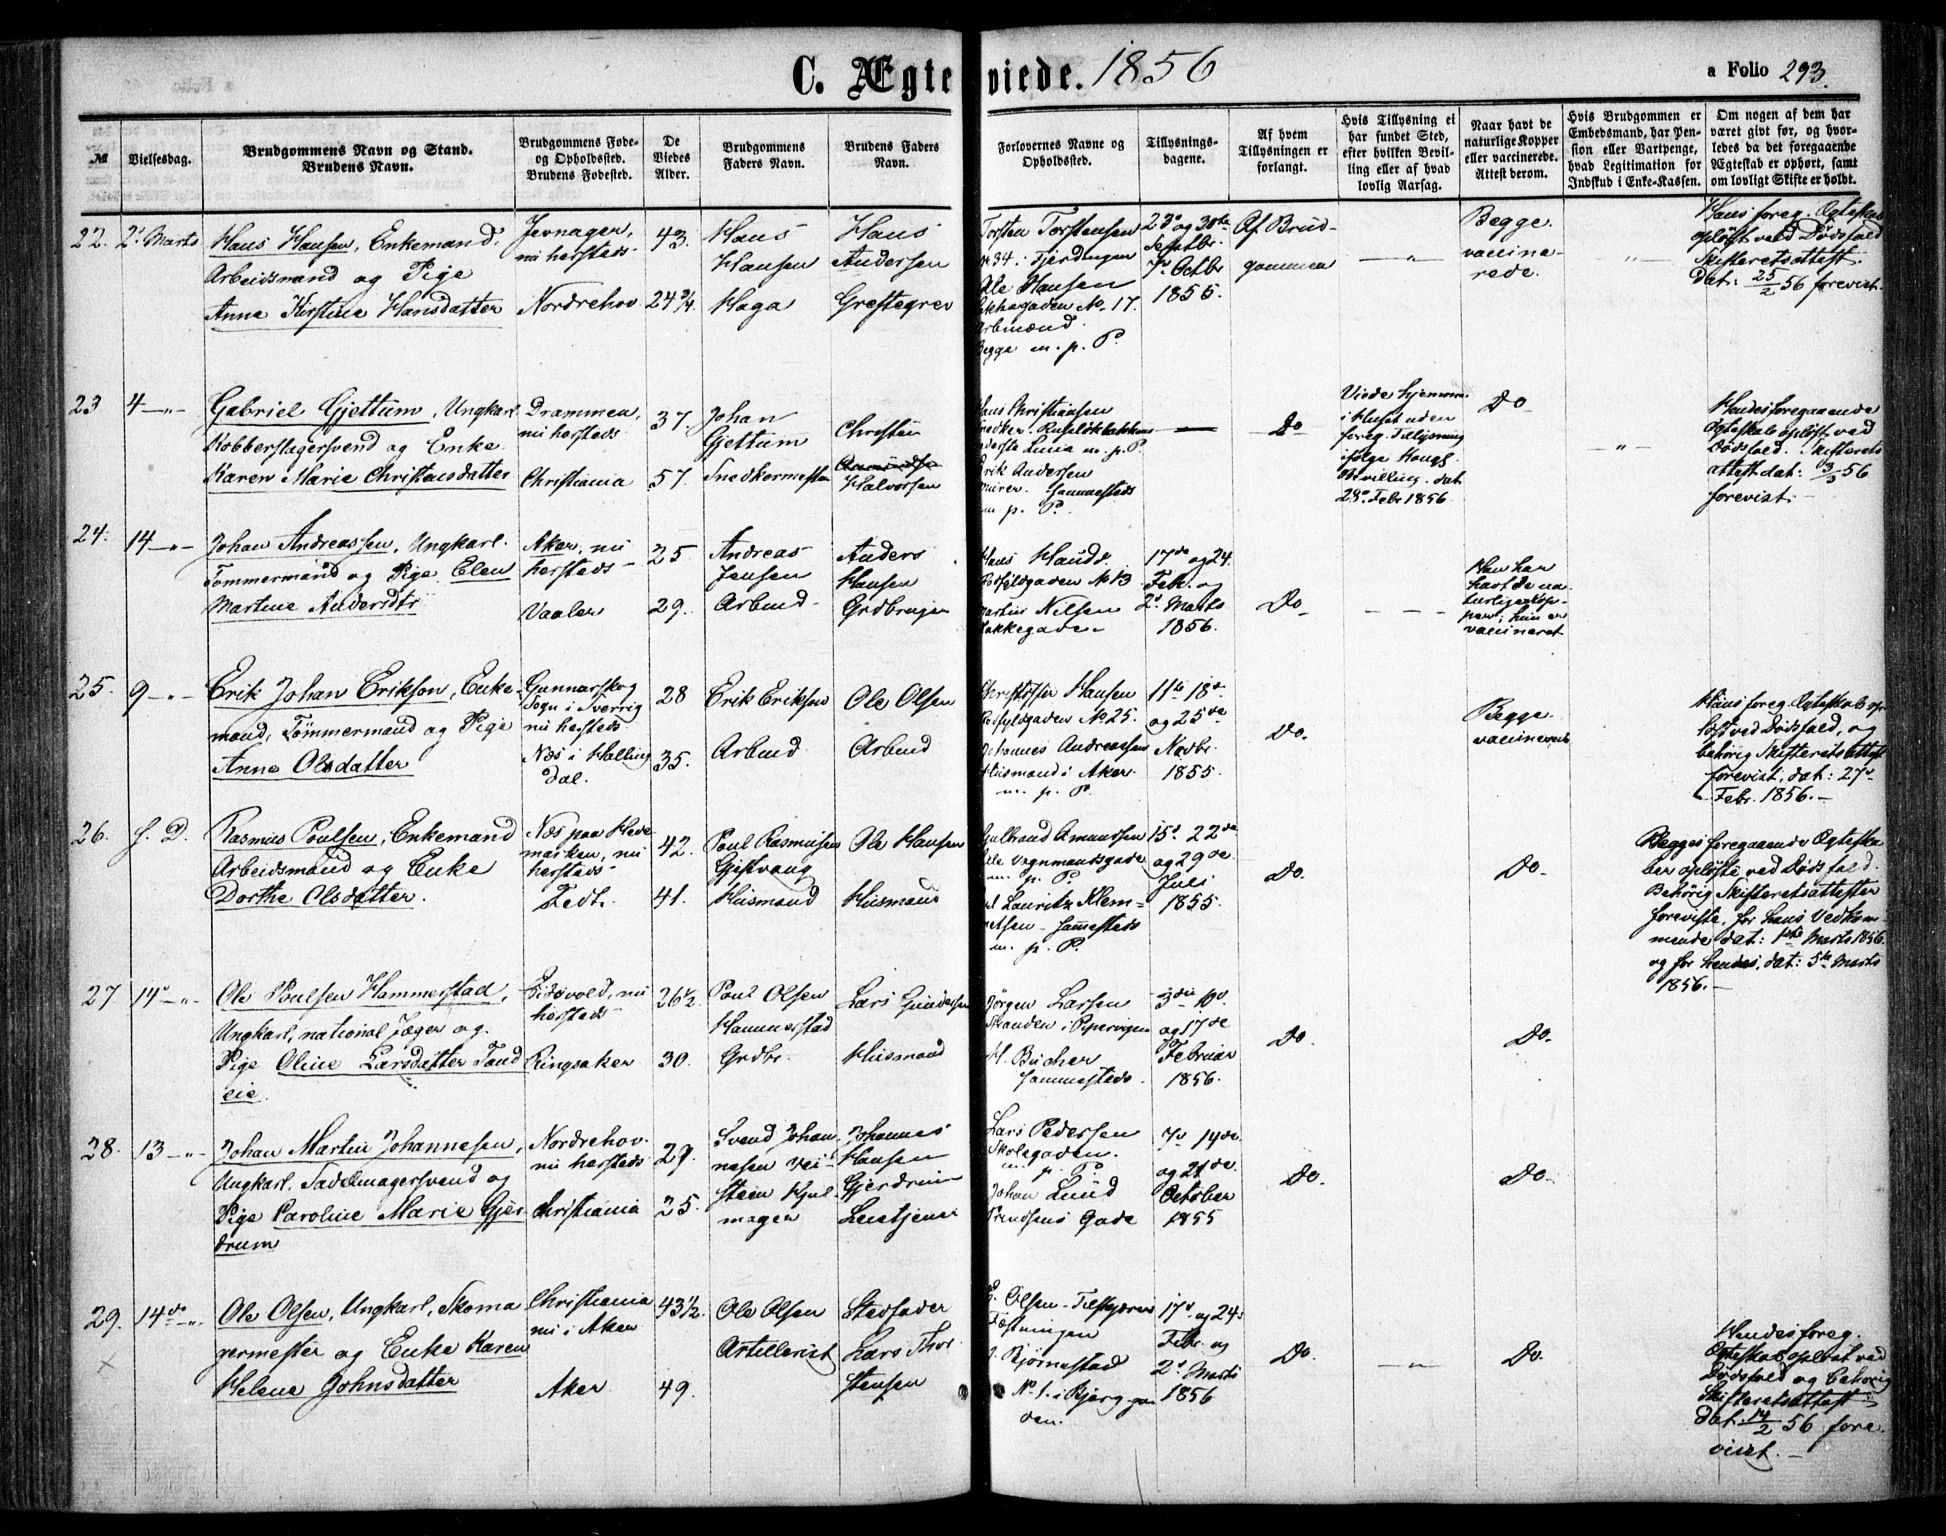 C. Ægteviede. 1856
a Folio 293.
№
Vielsesdag.
Brudgommens Navn og Stand.
Brudens Navn.
Brudgommens Føde-
og Opholdsted.
Brudens Fødested.
De
Viedes
Alder.
Brudgommens
Faders Navn.
Brudens Faders
Navn.
Forlovernes Navne og
Opholdsted.
Tillysnings-
dagene.
Af hvem
Tillysningen er
forlangt.
Hvis Tillysning ei
har fundet Sted,
efter hvilken Bevil-
ling eller af hvad
lovlig Aarsag.
Naar havt de
naturlige Kopper
eller vaccinerede.
Attest derom.
Hvis Brudgommen er
Embedsmand, har Pen-
sion eller Vartpenge,
hvad Legitimation for
Indskud i Enke-Kassen.
Om nogen af dem har
været gift før, og hvor-
ledes da det foregaaende
Ægteskab er ophørt, samt
om lovligt Skifte er holdt.
22.
2' Marts
Hans Hansen, Enkemand,
Arbeidsmand og Pige
Anne Kirstine Hansdatter
Jevnager,
nu hersteds
Nordrehov
43.
24 3/4
Hans
Hansen
Haga
Hans
Andersen
Torsten Torstensen
34. Fjerdingen
Ole Hansen
No. 17.
Arbmænd.
Begge m. p. P.
23' og 30te
Septbr.
7de Octbr.
1855.
Af Brud-
gommen
— " —
Begge
vaccine-
rede.
"
Hans foreg. Ægteskab
opløst ved Dødsfald
Skifteretsattest
Dat: 25/2 56 forevist.
23
4 — " —
Gabriel Gjettum, Ungkarl
Kobberslagersvend og Enke
Karen Marie Christensdatter
Drammen,
nu hersteds
Christiania
37.
57.
Johan
Gjettum
Snedkermester
Christen
Halvorsen
Hans Christiansen
Snedker. Ruseløkbakken
m. p. P.
Erik Andersen
Murer. Sammesteds
m. p. P.
—
Do
Viede hjemme
i Huset uden
foreg. Tillysning
ifølge Kongl.
Bevilling. dat
28' Febr 1856.
Do
"
Hendes foregaaende
Ægteskab opløst ved
Dødsfald. Skifterets
attest dat: 3/3 56
forevist.
24.
14 — " —
Johan Andreassen, Ungkarl.
Tømmermand og Pige Elen
Martine Andersdtr
Aker, nu
hersteds
Vaaler
25
29.
Andreas
Jensen
Arbmd
Anders
Hansen
Grdbruger
Hans
No 13
Martin Nilsen
Bakkegaden
17de og 24
Feb. og
2' Marts
1856.
Do
— " —
Han har
havt de na-
turlige Kop-
per; hun er
vaccineret
25.
9 — " —
Erik Johan Erikson, Enke-
mand, Tømmermand og Pige
Anne Olsdatter
Gunnarskog
Sogn i Sverrig
nu hersteds
Næs i Halling
dal.
28
35.
Erik Erikson
Arbmd
Ole Olsen
Arbmd
Christoffer Hansen
No 25.
Johannes Andreassen
Husmand i Aker
m. p. P.
11te 18de
og 25de
Novbr.
1855.
Do.
Begge
vaccinerede
Hans foreg. Ægteskab op-
løst ved Dødsfald, og
behørig Skifteretsattest
forevist, dat: 27de
Febr. 1856. —
26.
S. D.
Rasmus Poulsen, Enkemand
Arbeidsmand og Enke
Dorthe Olsdatter.
Næs paa Hede
marken, nu
hersteds
Fedt.
42.
41.
Poul Rasmusen
Gjestvang
Husmand
Ole Hansen
Husmand
Gulbrand Amundsen
Vognmandsgade
m. p. P.
Lauritz Klem-
etsen - Sammesteds
m. p. P.
15de 22de
og 29de
Juli
1855.
Do.
Do.
Begges foregaaende Ægteska-
ber opløste ved Dødsfald.
Behørig Skifteretsattester
foreviste, for hans Vedkom-
mende dat: 1ste Marts 1856.
og for hendes, dat: 5te Marts
1856. —
27
14de — " —
Ole Poulsen Hammerstad,
Ungkarl, national Jæger og
Pige Oline Larsdatter Sand
eie.
Eidsvold, nu
hersteds
Ringsaker
26 1/2
30.
Poul Olsen
Hammerstad
Grdbr.
Lars Gundersen
Husmand
Jørgen Larsen
Stranden i Pipervigen
H. Bücher
Sammesteds.
3die 10de
og 17de
Februar
1856.
Do.
Do.
28.
13 — " —
Johan Martin Johannesen,
Ungkarl. Sadelmagersvend og
Pige Caroline Marie Gjer-
drum
Nordrehov.
nu hersteds
Christiania
29.
25.
Svend Johan-
nesen Vei-
steen Hjul-
mager
Johannes
Hansen
Gjerdrum
Lars Pedersen
Skolegaden.
m. p. P.
Johan Lund
Prindsens Gade
7de 14de
og 21de
October
1855
Do.
Do.
29.
14de — " —
Ole Olsen, Ungkarl, Skoma
germester og Enke Karen
Helene Johnsdatter
Christiania
nu i Aker
Aker
43 1/2.
49.
Ole Olsen
Artillerist
Stedfader
Lars Thor-
stensen
Olsen
Fæstningen
Bjørnestad
No 1. i Bjerg-
17de og 24de
Febr. og
2' Marts
1856
Do.
— " —
Do.
Hendes foreg.
Ægteskab opløst ved
Dødsfald og behørig
Skifteretsattest
dat. 14/2 56 fore-
vist. —